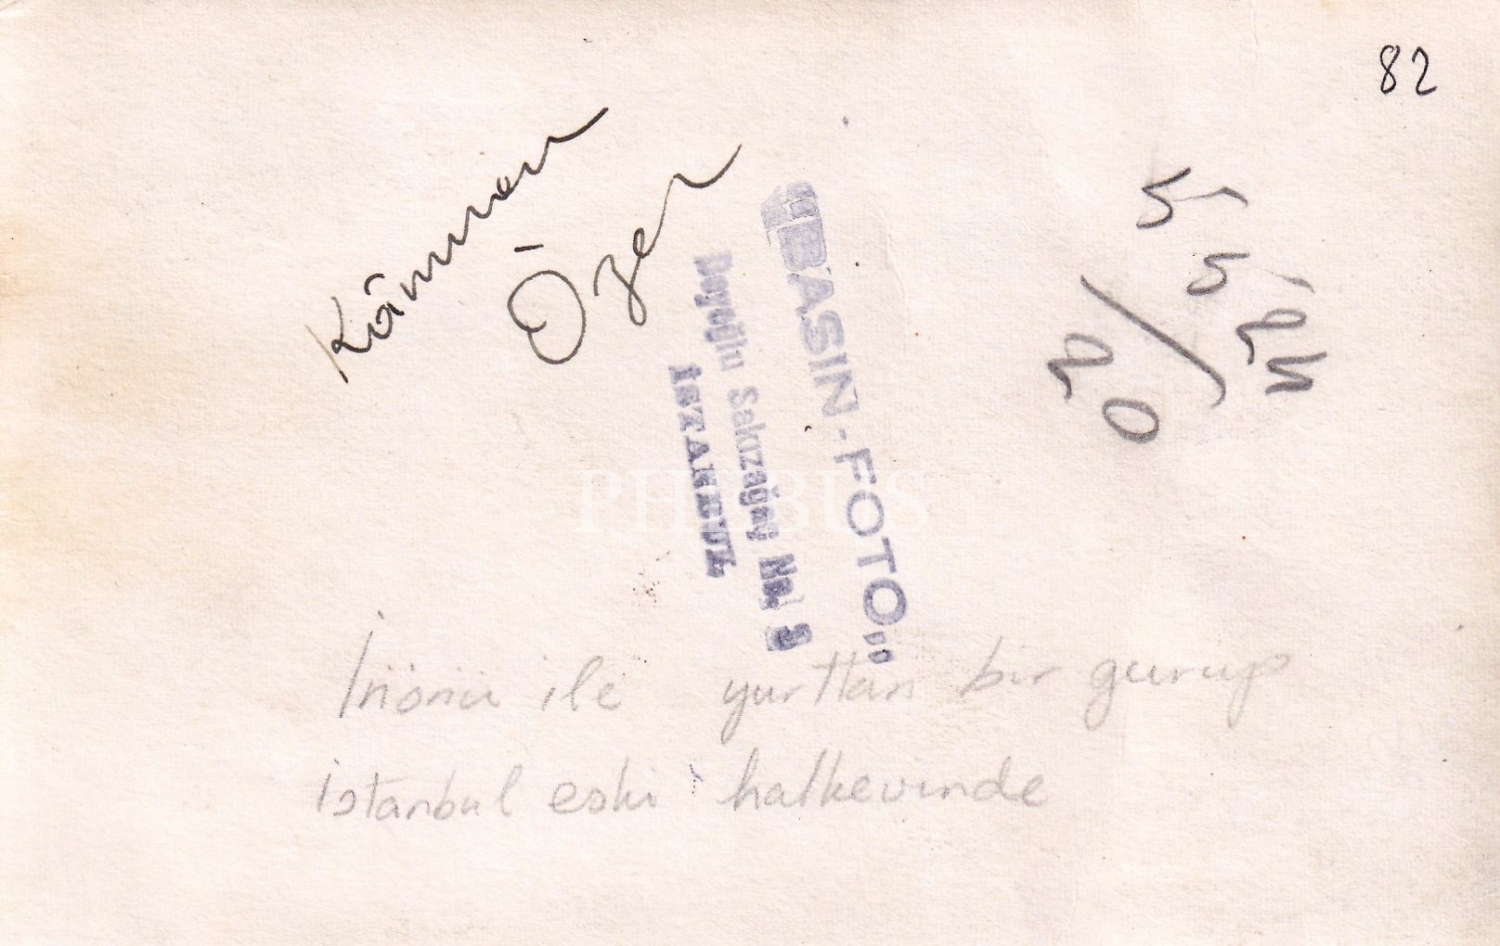 82
Kâmuran
Özer
BASIN-FOTO„
Beyoğlu Sakızağaç No. 9
İSTANBUL
PHEBUS
İnönü ile yurttan bir gurup
İstanbul eski halkevinde